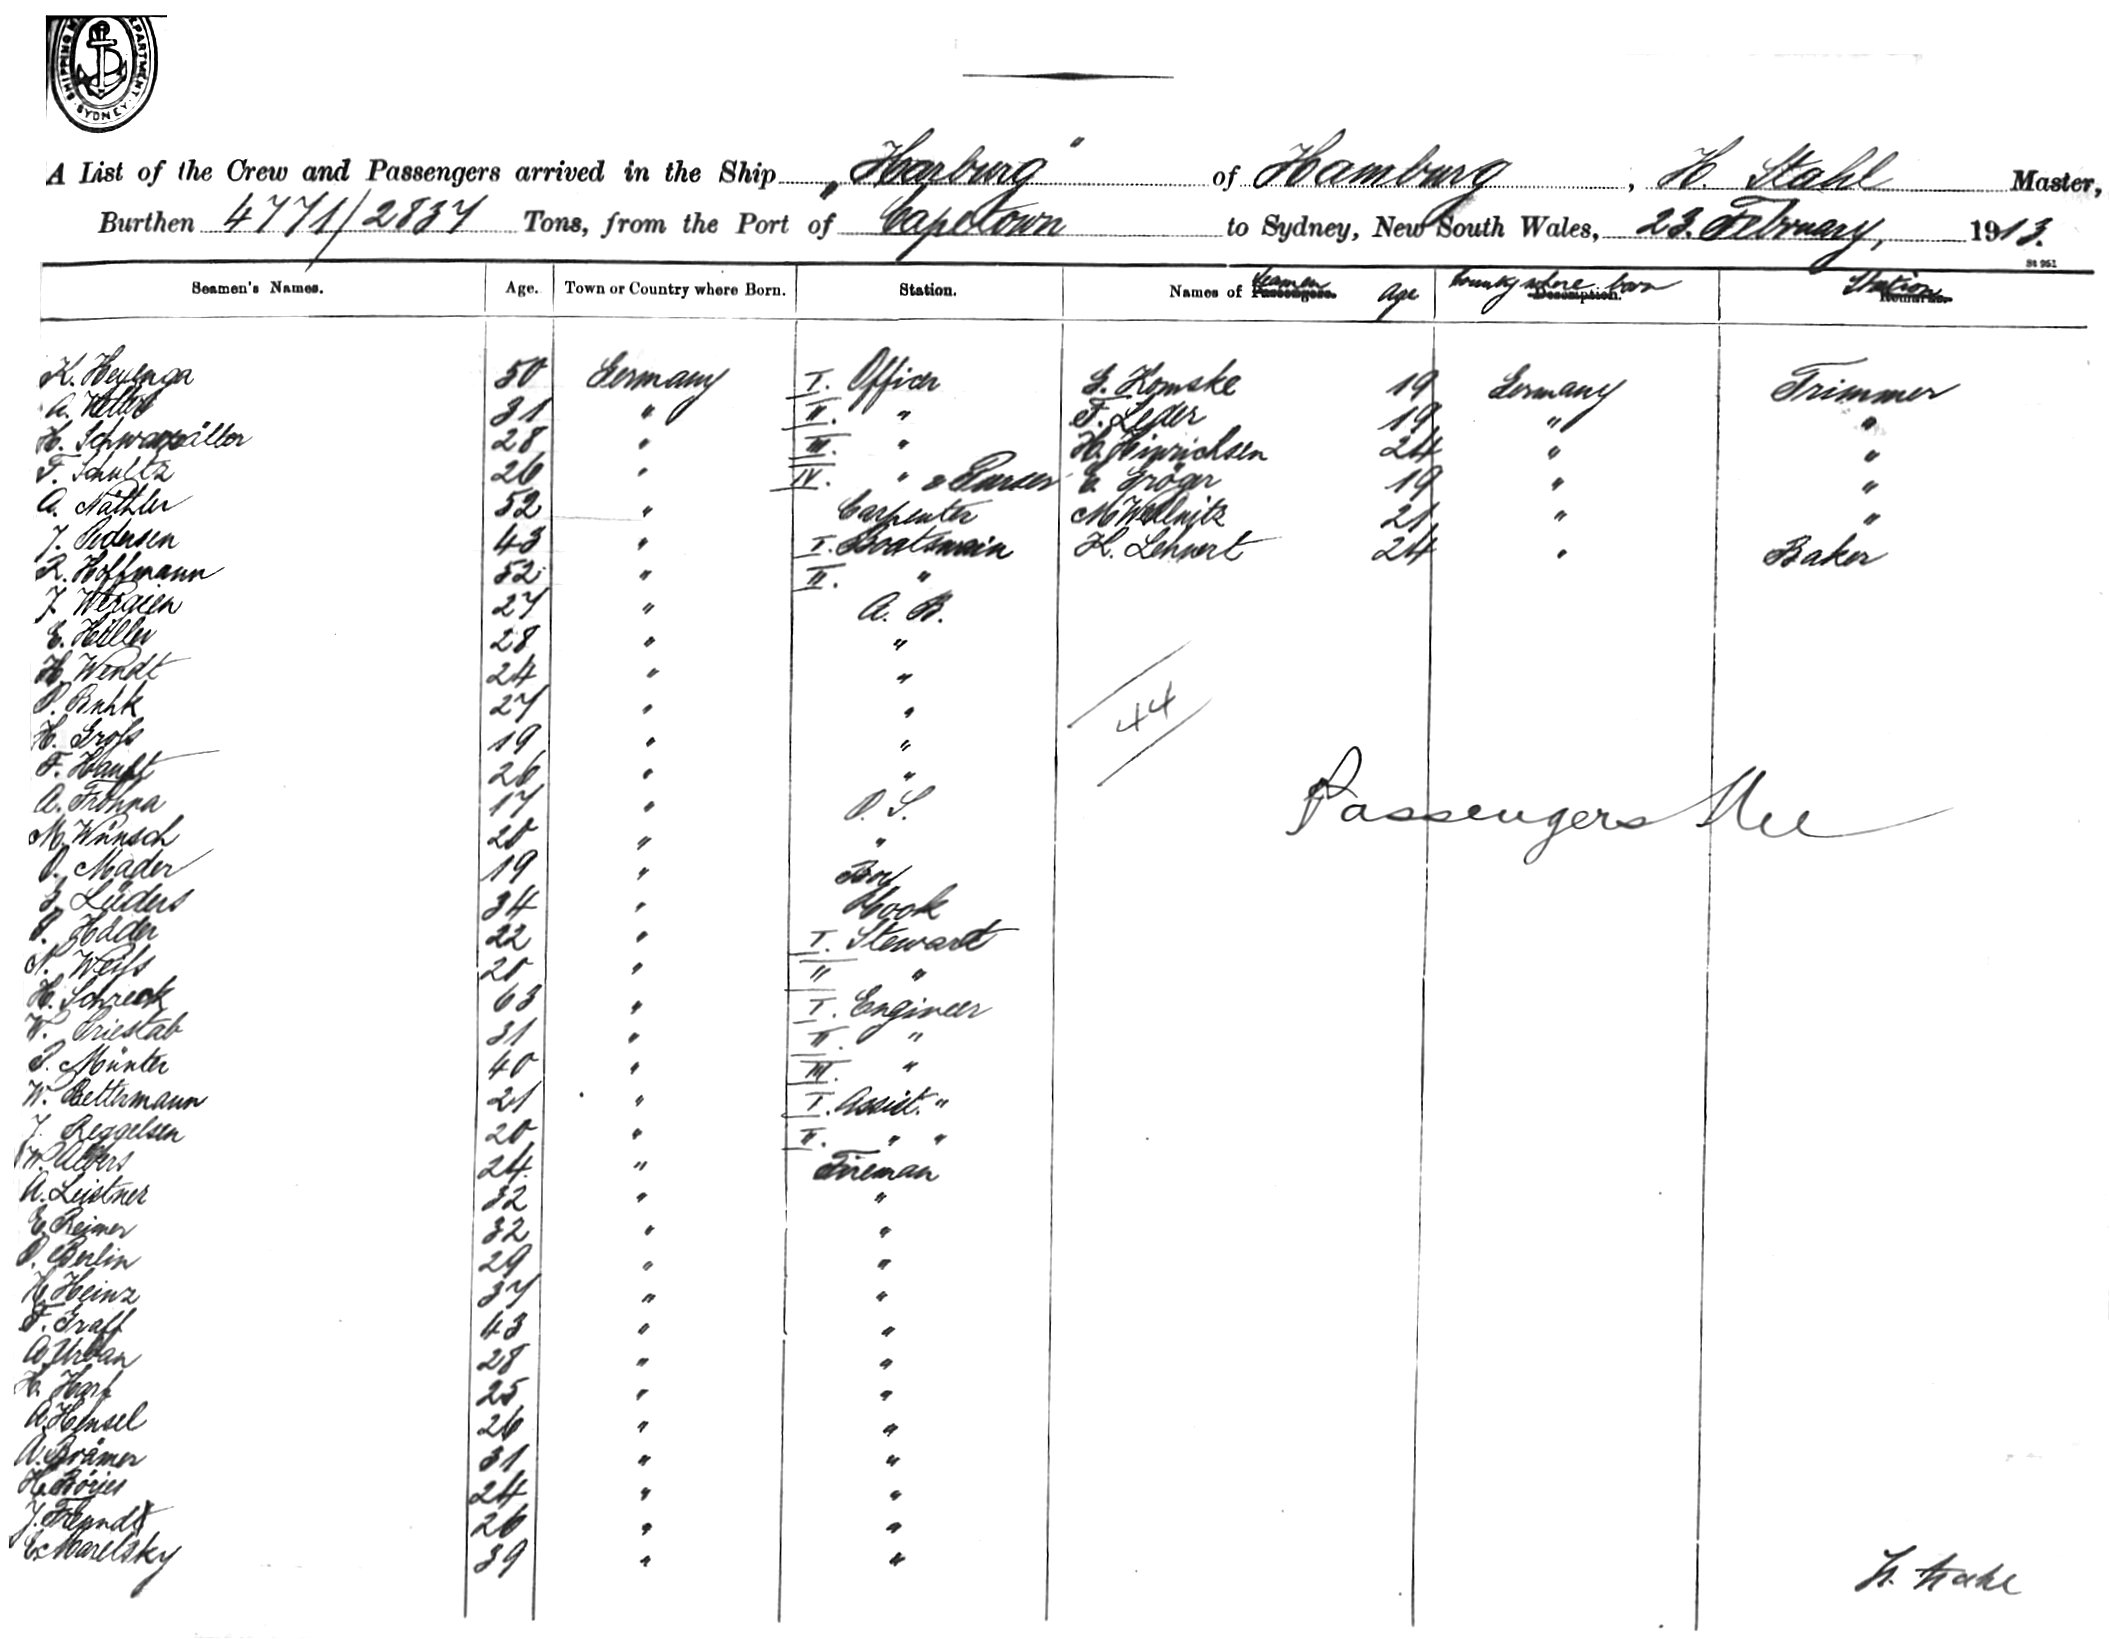 SHIPPING DEPARTMENT SYDNEY
A List of the Crew and Passengers arrived in the Ship „Harburg" of Hamburg, H. Stahl Master,
Burthen 4771/2837 Tons, from the Port of Capetown to Sydney, New South Wales, 23. February, 1913.
St 951
Seamen's Names. Age. Town or Country where Born. Station. Names of Passengers. Seamen Age Description. Country where born Remarks. Station
K. Heyenga 50 Germany I. Officer G. Komske 19 Germany Trimmer
A. 31 " II. " F. Leder 19 " "
H. 28 " III. " H. Hinrichsen 24 " "
F. Schultz 26 " IV. " & Purser E. Gröger 19 " "
A. Näthler 52 " Carpenter M. Wellnitz 21 " "
J. Pedersen 43 " I. Boatswain K. Lehnert 24 " Baker
R. Hoffmann 52 " II. "
J. 27 " A. B.
E. Höller 28 " "
H. Wendt 24 " "
O. Buhk 27 " "
H. Groß 19 " "
F. Hanft 26 " "
A. Frohna 17 " O. S.
M. Wünsch 20 " "
O. Mader 19 " Boy
Lüders 34 " Kook
Hödder 22 " I. Stewart
N. Weiß 20 " II "
H. Schreck 63 " I. Engineer
W. Priestab 31 " II. "
P. Münter 40 " III. "
W. Bettermann 21 " I. Assist. "
J. Reggelsen 20 " II. " "
W. Albers 24 " Fireman
A. Leistner 32 " "
E. Reimer 32 " "
O. Berlin 29 " "
H. Heinz 37 " "
F. Graff 43 " "
A. Urban 28 " "
H. Harf 25 " "
A. Hensel 26 " "
A. Brämer 31 " "
H. Börjes 24 " "
J. Freundt 26 " "
E. Marelsky 39 " "
44
Passengers Nil
H. Stahl